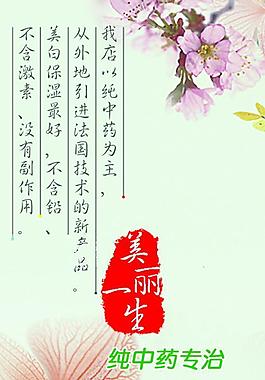 我店以纯中药为主，
从外地引进法国技术的新产品。
美白保湿最好，不含铅、
不含激素、没有副作用。
美丽
一生
纯中药专治